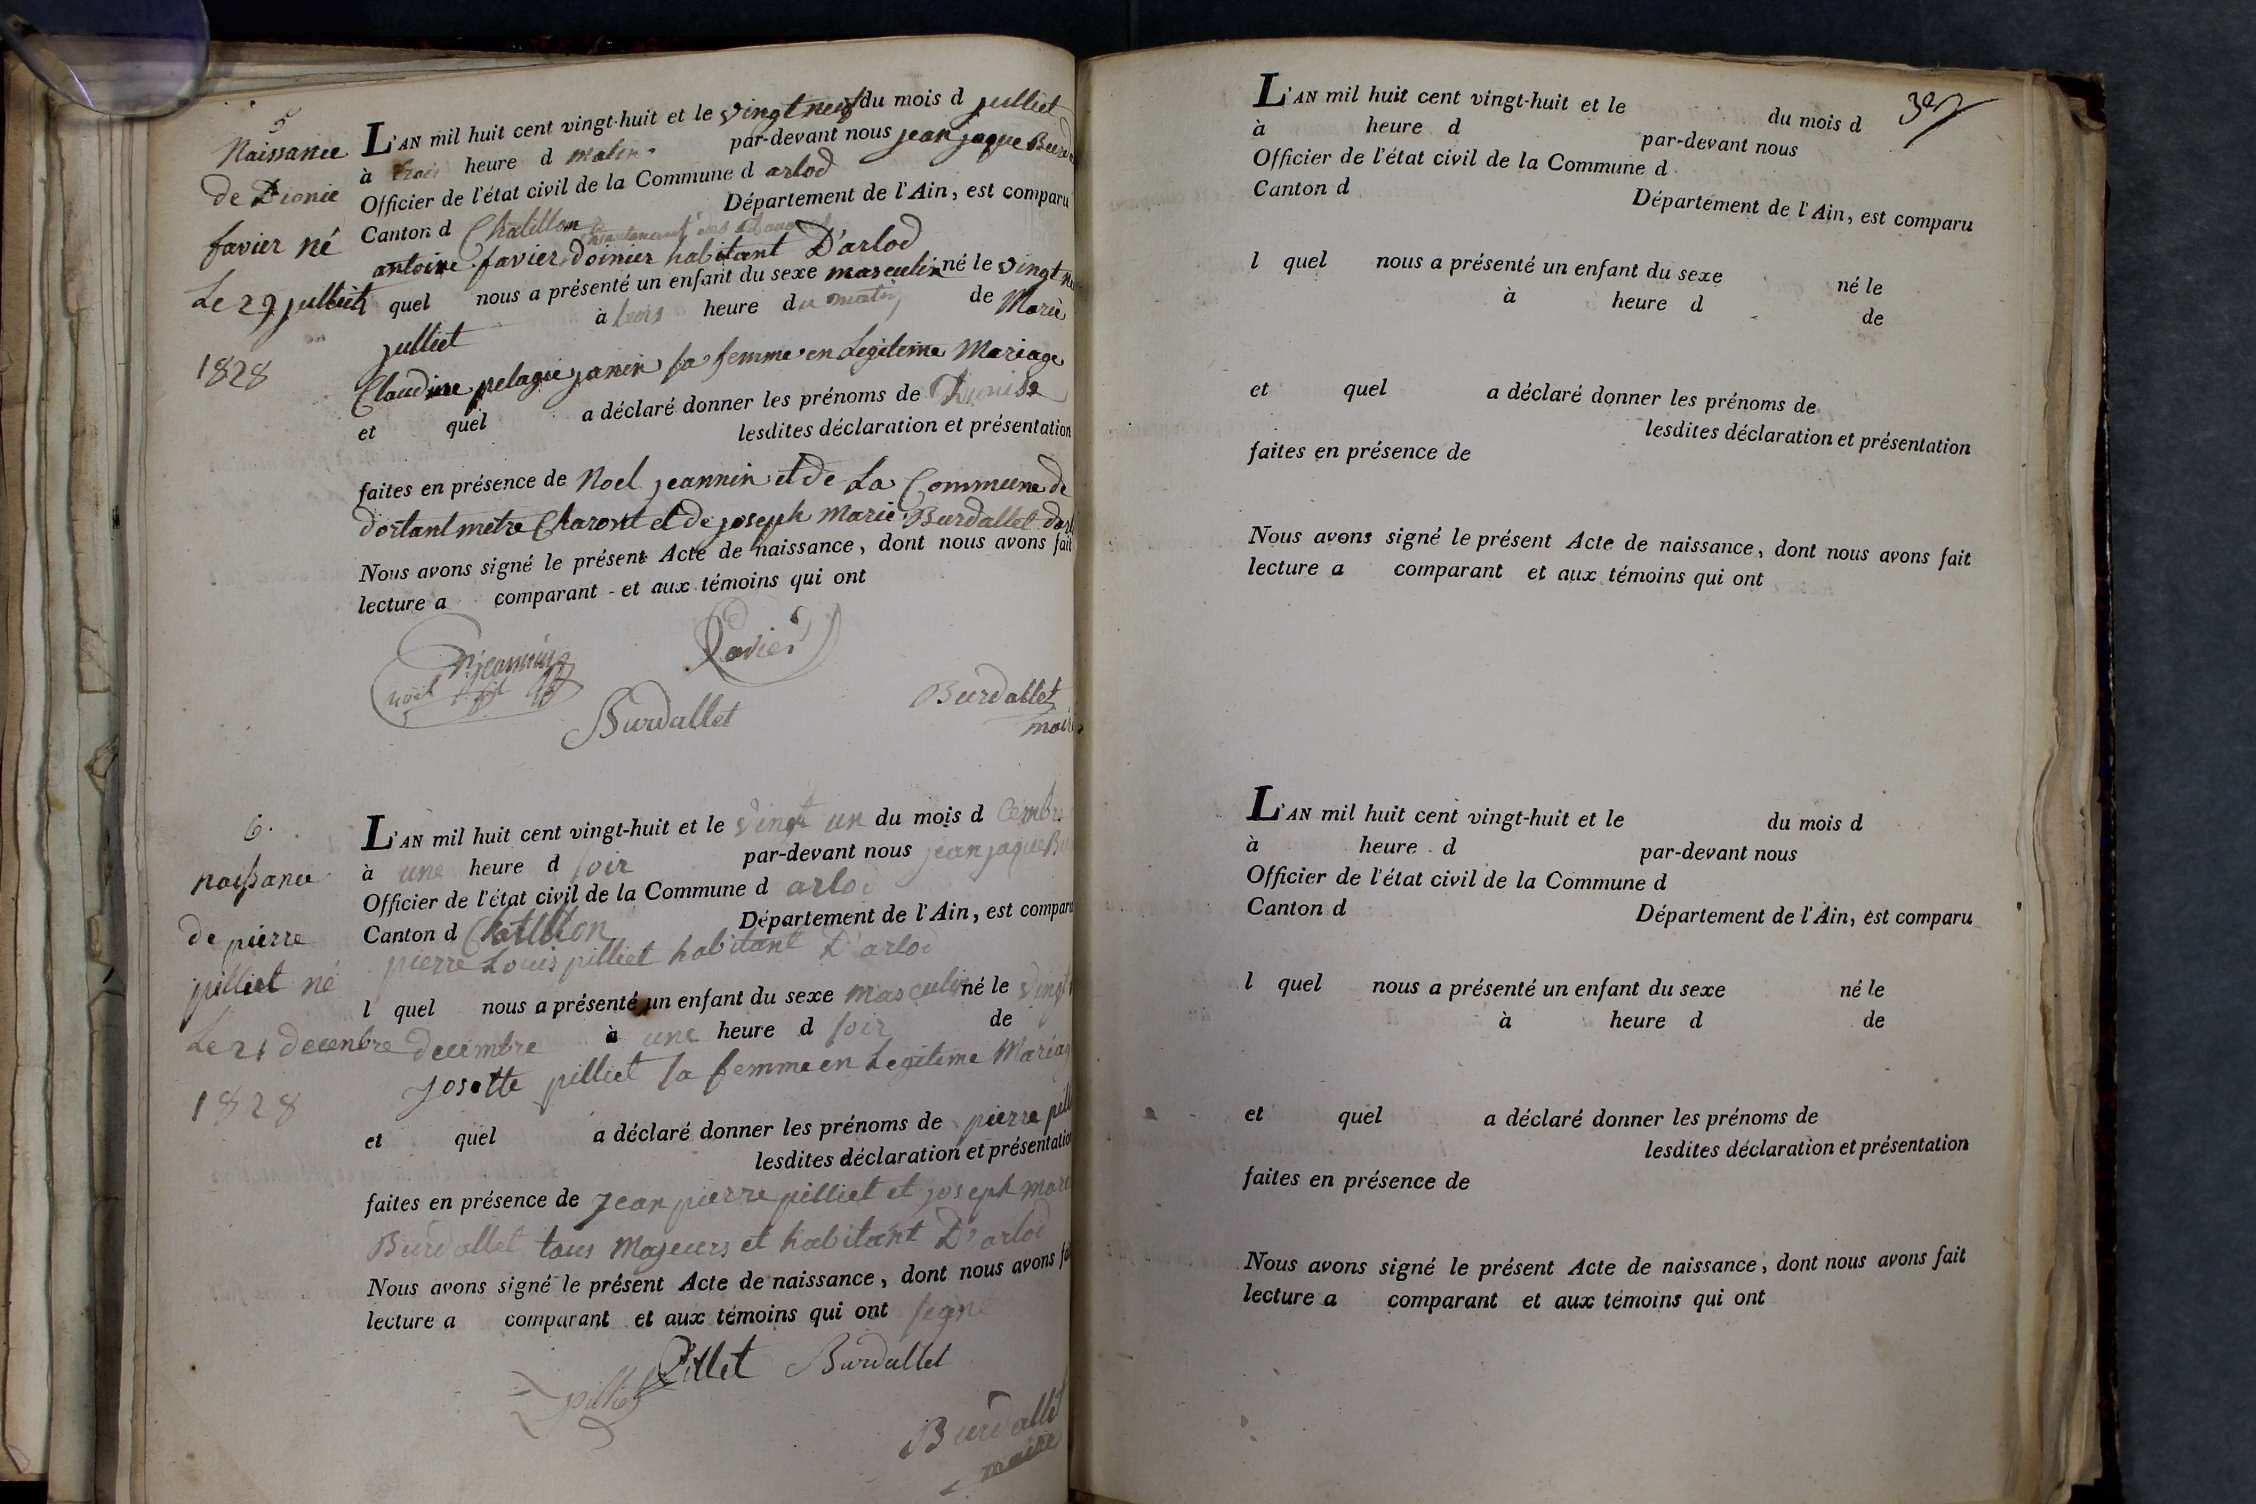 5
Naissance
de Dionie
favier né
Le 29 julliet
1828
L'AN mil huit cent vingt-huit et le vingt neuf du mois d julliet
à trois heure d matin par-devant nous jean jaque Burd
Officier de l'état civil de la Commune d arlod
Canton d Chatillon Département de l'Ain, est comparu
antoine favier doinier habitant D'arlod
quel nous a présenté un enfant du sexe masculin né le vingt
julliet à heure du matin de Marie
Claudine pelagie janin sa femme en Legiteme Mariage
et quel a déclaré donner les prénoms de
lesdites déclaration et présentation
faites en présence de Noel jeannin et de La Commune de
dortant metre Charont et de joseph Marie Burdallet
Nous avons signé le présent Acte de naissance, dont nous avons fait
lecture a comparant et aux témoins qui ont
Njeannin
noel
favier
Burdallet
Burdallet
maire
6.
naissance
de pierre
pilliet né
Le 21 decenbre
1828
L'AN mil huit cent vingt-huit et le vingt un du mois d Cembre
à une heure d soir par-devant nous jean jaque Bu
Officier de l'état civil de la Commune d arlod
Canton d Chatillon Département de l'Ain, est comparu
pierre Louis pilliet habitant D'arlod
l quel nous a présenté un enfant du sexe masculin né le vingt
decembre à une heure d soir de
Josette pilliet sa femme en Legiteme Mariag
et quel a déclaré donner les prénoms de pierre pill
lesdites déclaration et présentation
faites en présence de Jean pierre pilliet et joseph mari
Burdallet tous Majeurs et habitant D'arlod
Nous avons signé le présent Acte de naissance, dont nous avons fai
lecture a comparant et aux témoins qui ont signé
Pillet Burdallet
pilliet
Burdallet
maire
L'AN mil huit cent vingt-huit et le du mois d
à heure d par-devant nous
Officier de l'état civil de la Commune d
Canton d Département de l'Ain, est comparu
l quel nous a présenté un enfant du sexe né le
à heure d de
et quel a déclaré donner les prénoms de
lesdites déclaration et présentation
faites en présence de
Nous avons signé le présent Acte de naissance, dont nous avons fait
lecture a comparant et aux témoins qui ont
L'AN mil huit cent vingt-huit et le du mois d
à heure d par-devant nous
Officier de l'état civil de la Commune d
Canton d Département de l'Ain, est comparu
l quel nous a présenté un enfant du sexe né le
à heure d de
et quel a déclaré donner les prénoms de
lesdites déclaration et présentation
faites en présence de
Nous avons signé le présent Acte de naissance, dont nous avons fait
lecture a comparant et aux témoins qui ont